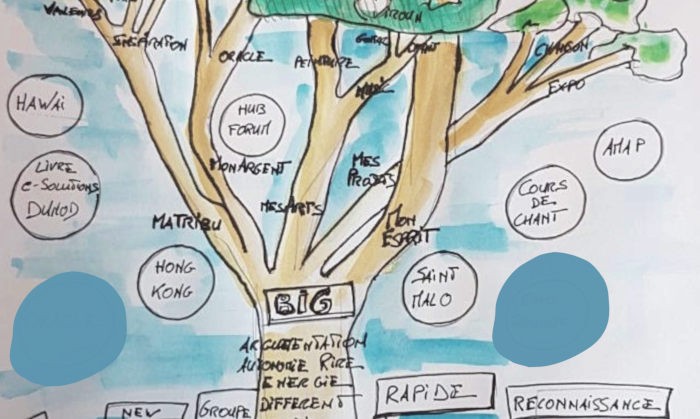 VALEURS
INSPIRATION
ORACLE
PEINTURE
CHANSON
EXPO
HAWAÏ
HUB
FORUM
AMAP
LIVRE
e-SOLUTIONS
DUNOD
MON ARGENT
MES
PROJETS
COURS
DE
CHANT
MA TRIBU
MES ARTS
MON
ESPRIT
HONG
KONG
SAINT
MALO
BIG
ARGUMENTATION
AUTONOMIE RIRE
ENERGIE
DIFFERENT
NEW
GROUPE
RAPIDE
RECONNAISSANCE